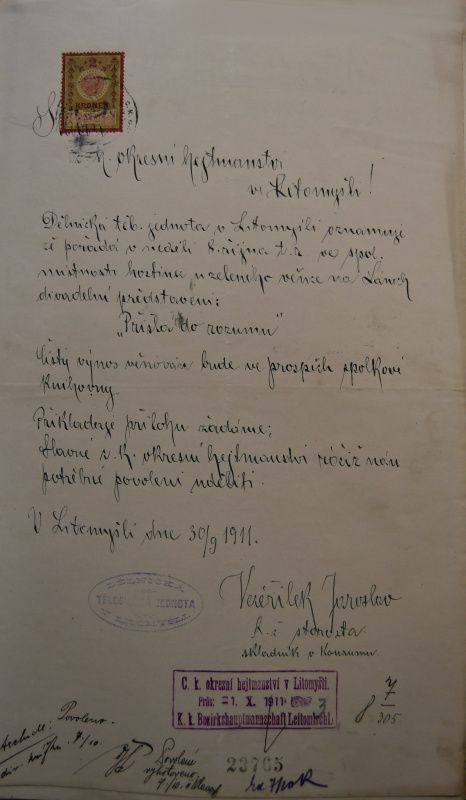 2
KRONEN
k. okresní hejtmanství
v Litomyšli!
Dělnická těl. jednota v Litomyšli oznamuje
že pořádá v neděli 8. října t. r. ve spol.
místnosti hostince u zeleného věnce na Lánech
divadelní představení:
"Přišla do rozumu"
Čistý výnos věnován bude ve prospěch spolkové
knihovny.
Přikládajíc přílohu žádáme;
Slavné c. k. okresní hejtmanství račiž nám
potřebné povolení uděliti.
V Litomyšli dne 30/9 1911.
DĚLNICKÁ
TĚLOCVIČNÁ JEDNOTA
V LITOMYŠLI
Jaroslav
t. č. starosta
skladník v Konsumu.
C. k. okresní hejtmanství v Litomyšli.
Präs: 1. X. 1911
K. k. Bezirkshauptmannschaft Leitomischl.
8 7/305
Povoleno.
7/10.
Povolení
vyhotoveno
7/10.
23765